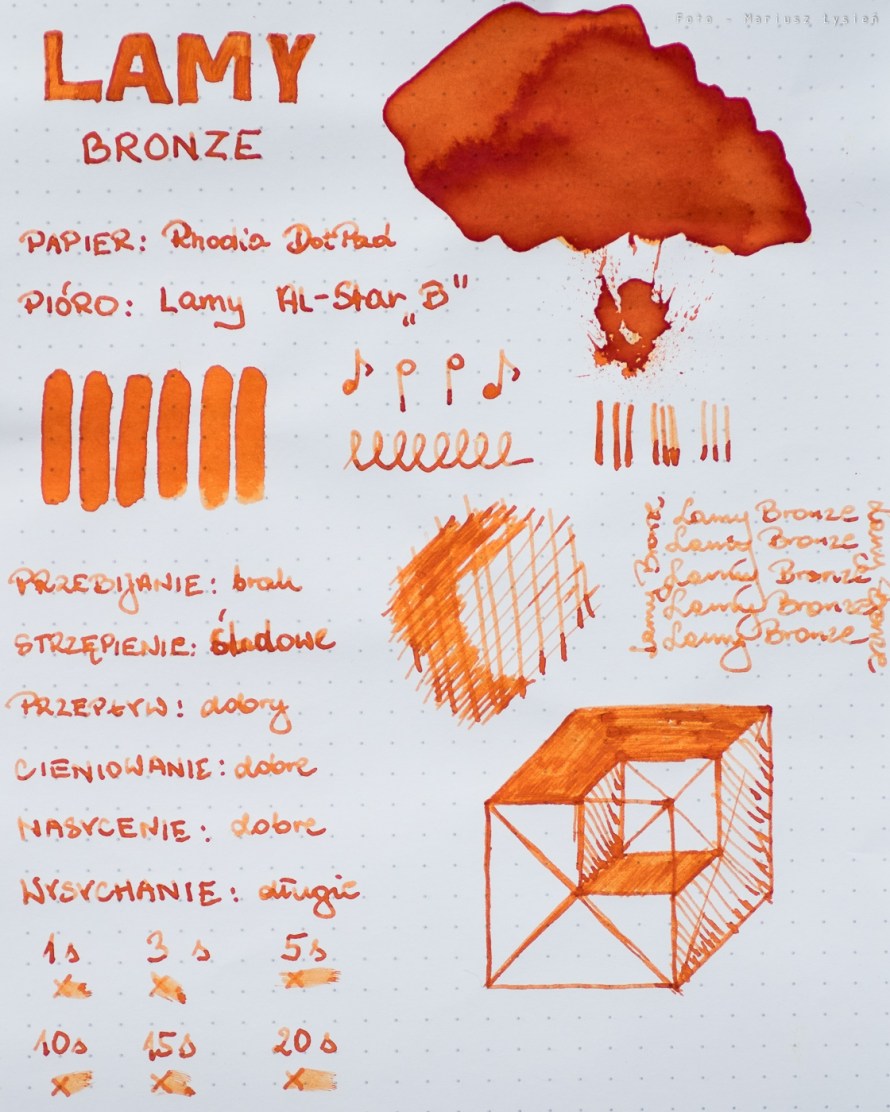 Foto - Mariusz Łysień
LAMY
BRONZE
PAPIER: Rhodia DotPad
PIÓRO: Lamy AL-Star „B"
PRZEBIJANIE: brak
STRZĘPIENIE: śladowe
PRZEPŁYW: dobry
CIENIOWANIE: dobre
NASYCENIE: dobre
WYSYCHANIE: długie
1s 3 s 5s
x x x
10s 15s 20s
x x x
Lamy Bronze
Lamy Bronze
Lamy Bronze
Lamy Bronze
Lamy Bronze
Lamy Bronze
Lamy Bronze